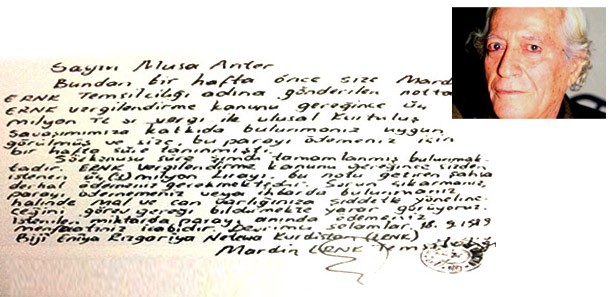 Sayın Musa Anter
Bundan bir hafta önce size Mardin
ERNK Temsilciliği adına gönderilen notta
ERNK vergilendirme kanunu gereğince üç
milyon TL sı vergi ile ulusal kurtuluş
savaşımımıza katkıda bulunmanız uygun
görülmüş ve size, bu parayı ödemeniz için
bir hafta süre tanınmıştı.
Sözkonusu süre şimdi tamamlanmış bulunmak-
tadır. ERNK vergilendirme kanunu gereğince sizden
istenen üç (3) milyon lirayı, bu notu getiren şahsa
derhal ödemeniz gerekmektedir. Sorun çıkarmanız,
parayı ödememeniz veya ihbarda bulunmanız
halinde mal ve can varlığınıza şiddetle yöneline-
ceğini, görev gereği bildirmekte yarar görüyoruz.
İstenilen miktarda parayı anında ödemeniz
menfaatiniz icabıdır. Devrimci selamlar. 18.9.1989
Biji Eniya Rızgariya Netewa Kurdistan (ERNK)
Mardin ERNK Temsilciliği